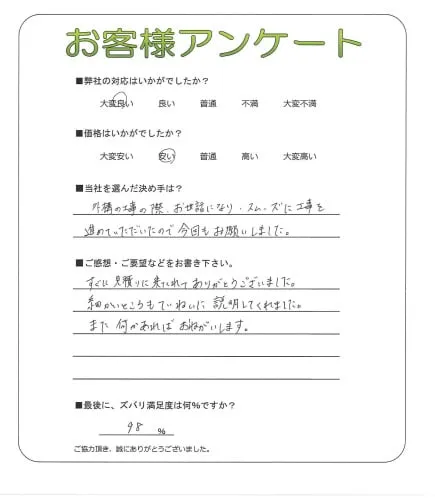 お客様アンケート
■弊社の対応はいかがでしたか？
大変良い 良い 普通 不満 大変不満
■価格はいかがでしたか？
大変安い 安い 普通 高い 大変高い
■当社を選んだ決め手は？
外構の工事の際、お世話になり・スムーズに工事を
進めていただいたので今回もお願いしました。
■ご感想・ご要望などをお書き下さい。
すぐに見積りに来てくれてありがとうございました。
細かいところもていねいに説明してくれました。
また何かあればおねがいします。
■最後に、ズバリ満足度は何％ですか？
98 %
ご協力頂き、誠にありがとうございました。